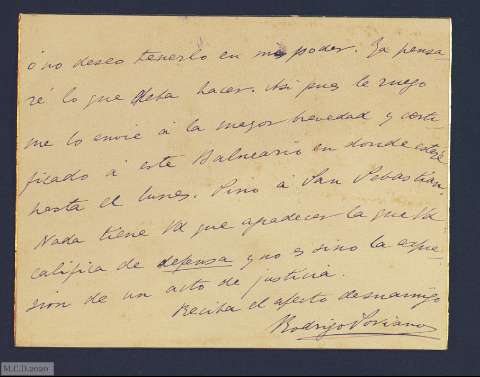 ó no deseo tenerlo en mi poder. Ya pensa-
ré lo que deba hacer. Así pues le ruego
me lo envie á la mayor brevedad y certi-
ficado á este Balneario en donde estaré
hasta el lunes. Sino á San Sebastián.
Nada tiene Vd que agradecer la que Vd
califica de defensa y no es sino la expre-
sion de un acto de justicia.
Reciba el afecto de su amigo
Rodrigo Soriano
M.C.D. 2020